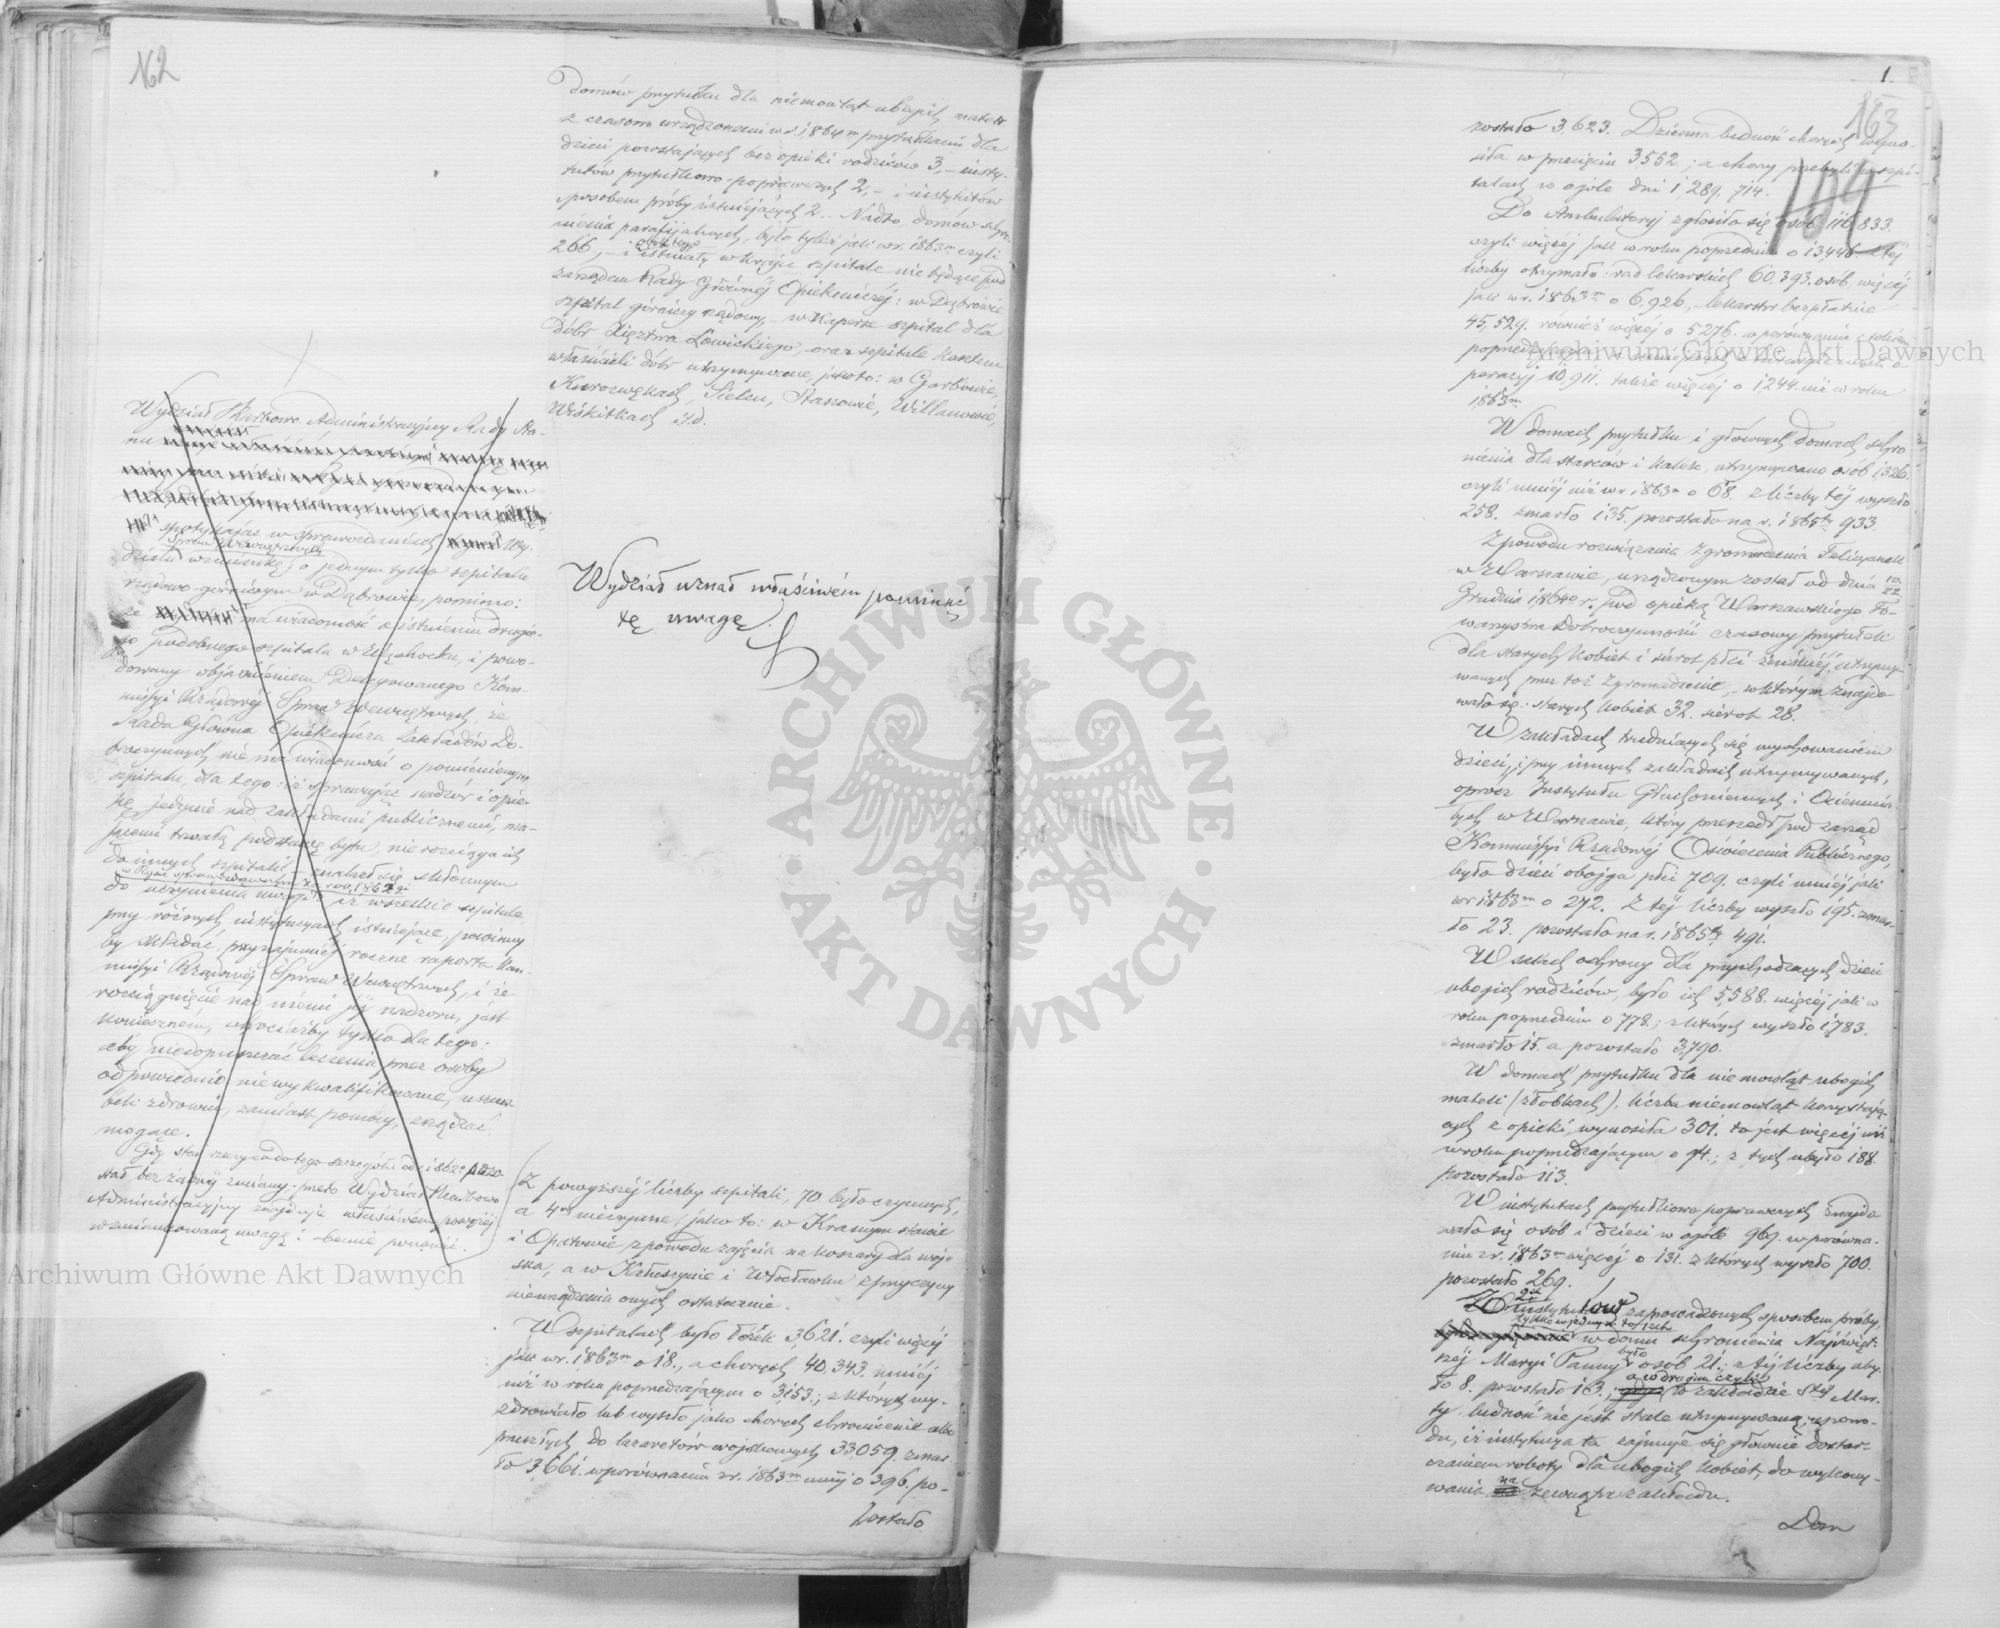 № 2
domów przytułku dla niemowląt ubogich matek
z czasowo urządzonemi w r. 1864m przytułkami dla
dzieci pozostających bez opieki rodziców 3, – insty-
tutów przytułkowo-poprawczych 2, – i instytutów
sposobem próby istniejących 2. – Nadto, domów schro-
nienia parafijalnych, było tyleż jak w r. 1863m czyli
266, – i istniały w kraju szpitale nie będące pod
zarządem Rady Głównej Opiekuńczej: w Dąbrowie
szpital górniczy rządowy, – w Kapersze szpital dla
dóbr Xięztwa Łowickiego, oraz szpitale kosztem
właścicieli dóbr utrzymywane, jakoto: w Garbowie,
Kurozwękach, Sielcu, Staszowie, Willanowie,
Wiskitkach i t. d.
Wydział Skarbowo Administracyjny Rady Sta-
nu
spotykając w sprawozdaniach Wy-
Spraw Wewnętrznych
działu wzmiankę o jednym tylko szpitalu
rządowo-górniczym w Dąbrowie, pomimo:
że ma wiadomość o istnieniu drugie-
go podobnego szpitala w Wąchocku, i powo-
dowany objaśnieniem Delegowanego Kom-
missyi Rządowej Spraw Wewnętrznych, że
Rada Główna Opiekuńcza Zakładów Do-
broczynnych nie ma wiadomości o pomienionym
szpitalu, dla tego: iż sprawując nadzór i opie-
kę jedynie nad zakładami publicznemi, ma-
jącemi trwałą podstawę bytu, nie rozciąga ich
do innych szpitali, znalazł się skłonnym
do uczynienia uwagi iż wszelkie szpitale
przy różnych instytucyach istniejące, powinny
by składać przynajmniej roczne raporta Kom-
missyi Rządowej Spraw Wewnętrznych, i że
rozciągnięcie nad niemi jej nadzoru, jest
koniecznem, chociażby tylko dla tego:
aby niedopuszczać leczenia przez osoby
odpowiednio niewykwalifikowane, uszczer-
bek zdrowiu, zamiast pomocy, zrządzać
mogące.
Gdy stan rzeczy co do tego szczegółu od r. 1862o pozo-
stał bez żadnej zmiany, przeto Wydział Skarbowo
Administracyjny znajduje właściwem powyżej
wzmiankowaną uwagę ponowić.
Wydział uznał właściwem pominąć
tę uwagę.
Z powyższej liczby szpitali, 70 było czynnych,
a 4ry nieczynne, jako to: w Krasnymstawie
i Opatowie z powodu zajęcia na koszary dla woj-
ska, a w Kałuszynie i Włocławku z przyczyny
nieurządzenia onych ostatecznie.
W szpitalach było łóżek 3,621. czyli więcej
jak w r. 1863m o 18., a chorych 40,343. mniej
niż w roku poprzedzającym o 3,153.; z których wy-
zdrowiało lub wyszło jako chorych chronicznie albo
przeszłych do lazaretów wojskowych 33,059. zmar-
ło 3,661. w porównaniu z r. 1863m mniej o 396. po-
zostało
1.
163
164
zostało 3,623. Dzienna ludność chorych wyno-
siła w przecięciu 3552.; a chorzy przebyli w szpi-
talach w ogóle dni 1,289,714.
Do Ambulatoryj zgłosiło się osób 116,833.
czyli więcej jak w roku poprzednim o 13,446. z tej
liczby otrzymało: rad lekarskich 60,393. osób, więcej
jak w r. 1863m o 6,926, – lekarstw bezpłatnie
45,529. również więcej o 5276. w porównaniu z rokiem
poprzednim
peracyj 10,911. także więcej o 1,244. niż w roku
1863m
W domach przytułku i głównych domach schro-
nienia dla starców i kalek, utrzymywano osób 1,326.
czyli mniej niż w r. 1863m o 68. z liczby tej wyszło
258. zmarło 135. pozostało na r. 1865ty 933.
Z powodu rozwiązania Zgromadzenia Felicyanek
w Warszawie, urządzonym został od dnia 10/22
Grudnia 1864o r. pod opieką Warszawskiego To-
warzystwa Dobroczynności czasowy przytułek
dla starych kobiet i sierot płci żeńskiej, utrzymy-
wanych przez toż Zgromadzenie, – w którym znajdo-
wało się: starych kobiet 32. sierot 28.
W zakładach trudniących się wychowaniem
dzieci, i przy innych zakładach utrzymywanych,
oprócz Instytutu Głuchoniemych i Ociemnia-
łych w Warszawie, który przeszedł pod zarząd
Kommissyi Rządowej Oświecenia Publicznego,
było dzieci obojga płci 709. czyli mniej jak
w r. 1863m o 272. Z tej liczby wyszło 195. zmar-
ło 23. pozostało na r. 1865ty 491.
W salach ochrony dla przychodzących dzieci
ubogich rodziców, było ich 5,588. więcej jak w
roku poprzednim o 778.; z których wyszło 1,783.
zmarło 15. a pozostało 3,790.
W domach przytułku dla niemowląt ubogich
matek (żłobkach). liczba niemowląt korzystają-
cych z opieki, wynosiła 301. to jest więcej niż
w roku poprzedzającym o 94.; z tych ubyło 188.
pozostało 113.
W instytutach przytułkowo poprawczych znajdo-
wało się osób i dzieci w ogóle 969. w porówna-
niu z r. 1863m więcej o 131. z których wyszło 700.
pozostało 269.
Z 2ch instytutów zaprowadzonych sposobem próby,
tylko w jednym to jest
w domu schronienia Najświęt-
szej Maryi Panny było osób 21.; z tej liczby uby-
ło 8. pozostało 13.; a w drugim czyli w zakładzie Stej Mar-
ty, ludność nie jest stale utrzymywaną, z powo-
du, iż instytucya ta zajmuje się głównie dostar-
czaniem roboty dla ubogich kobiet, do wykony-
wania na zewnątrz zakładu.
Dom
ARCHIWUM GŁÓWNE
AKT DAWNYCH
Archiwum Główne Akt Dawnych
Archiwum Główne Akt Dawnych